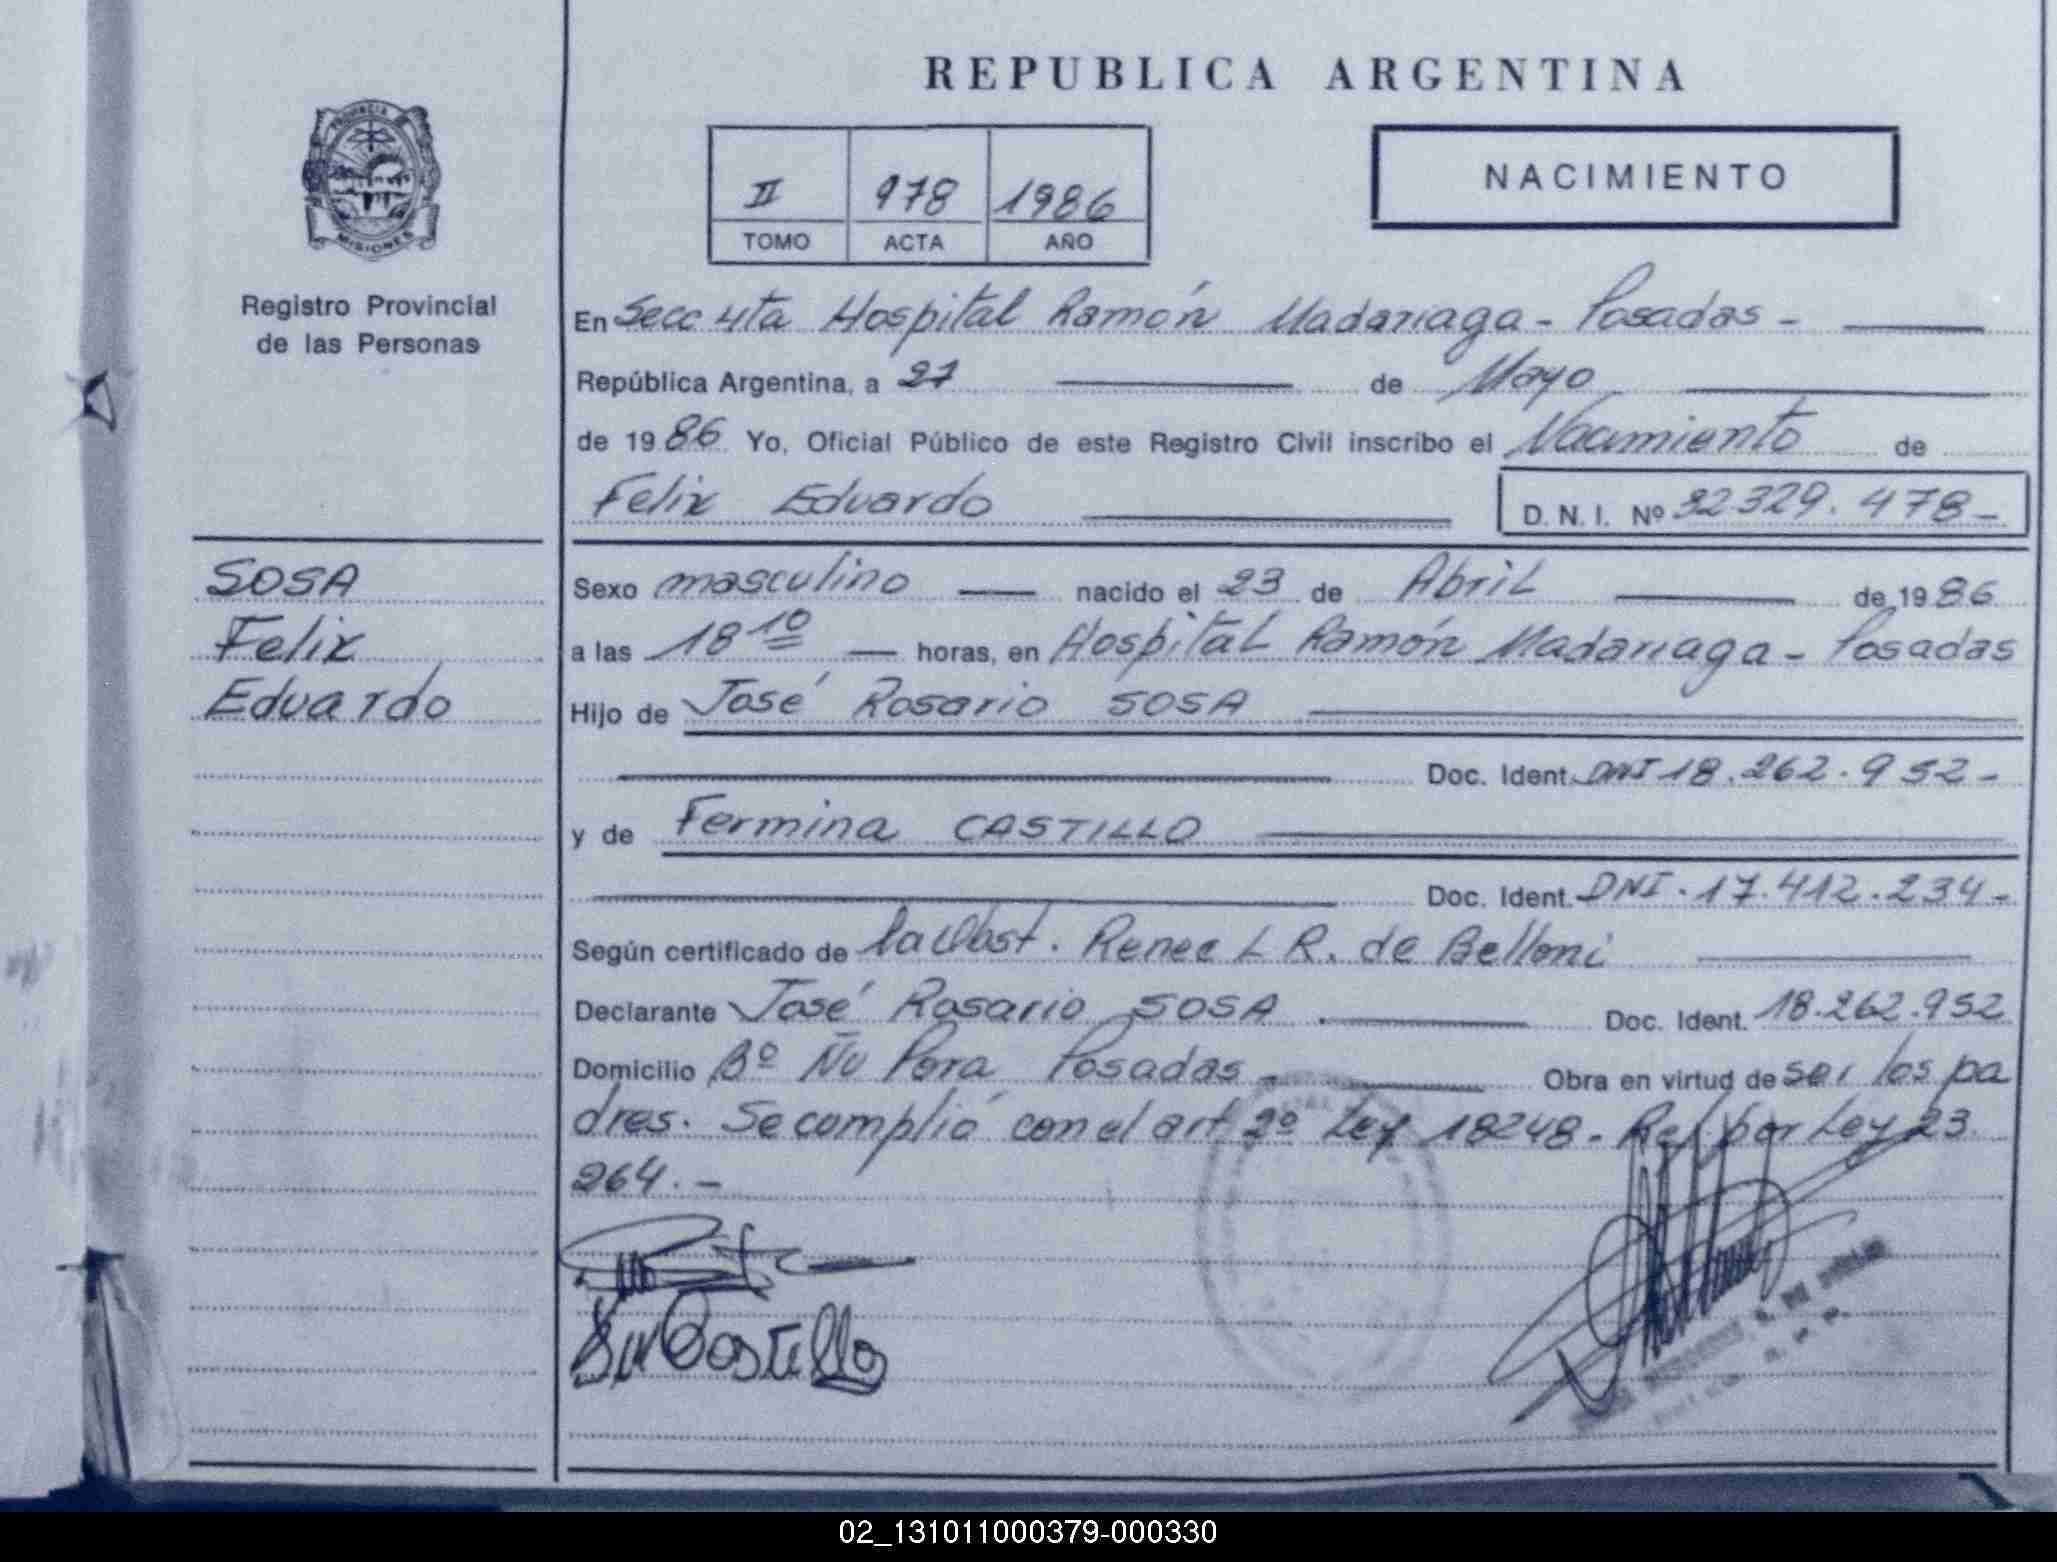 REPUBLICA ARGENTINA
PROVINCIA DE
MISIONES
Registro Provincial
de las Personas
II 978 1986
TOMO ACTA AÑO
NACIMIENTO
En Secc 4ta Hospital Ramón Madariaga - Posadas -
República Argentina, a 27 de Mayo
de 1986 Yo, Oficial Público de este Registro Civil inscribo el Nacimiento de
Felix Eduardo D. N. I. Nº 32329.478-
SOSA
Felix
Eduardo
Sexo masculino nacido el 23 de Abril de 1986
a las 18 10 horas, en Hospital Ramón Madariaga - Posadas
Hijo de José Rosario SOSA
Doc. Ident. DNI 18.262.952-
y de Fermina CASTILLO
Doc. Ident. DNI.17.412.234-
Según certificado de la Obst. Renee L R. de Belloni
Declarante José Rosario SOSA. Doc. Ident. 18.262.952
Domicilio Bº Ñu Pora Posadas - Obra en virtud de ser los pa
dres. Se cumplió con el art 2º Ley 18248- Ref. por Ley 23.
264.-
Castillo
02_131011000379-000330